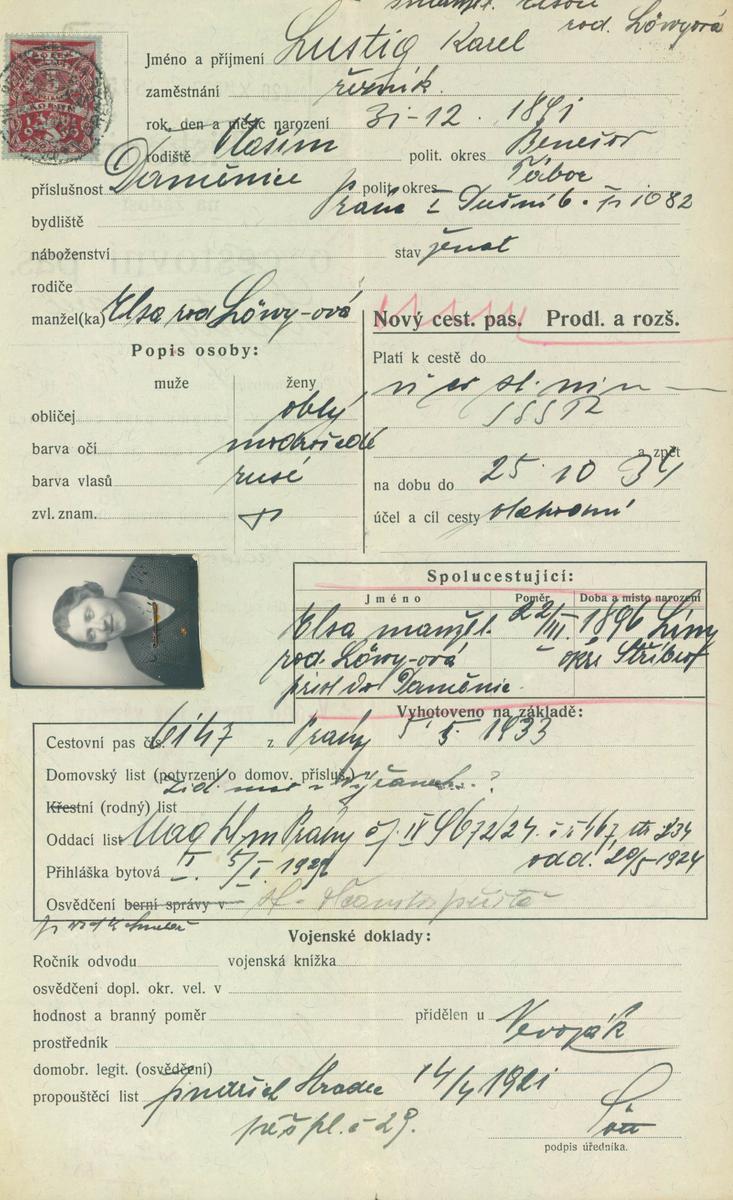 rod. Löwyová
Jméno a příjmení Lustig Karel
zaměstnání řezník.
rok, den a měsíc narození 31-12. 1891
rodiště Vlašim polit. okres Benešov
příslušnost Daměnice polit. okres Tábor
bydliště Praha I Dušní 6. čp 1082
náboženství stav ženat
rodiče
manžel(ka) Elsa rod Löwy-ová
Nový cest. pas. Prodl. a rozš.
Popis osoby:
muže ženy
Platí k cestě do
obličej oblý
barva očí modrošedé
a zpět
barva vlasů rusé
na dobu do 25. 10 34
zvl. znam.
účel a cíl cesty
Spolucestující:
Jméno Poměr Doba a místo narození
Elsa manžel. 22/III. 1896 Líny
rod. Löwy-ová okr. Stříbro
přísl do Daměnic.
Vyhotoveno na základě:
Cestovní pas čís. 6147 z Prahy 5. 5. 1933
Domovský list (potvrzení o domov. přísluš.)
Křestní (rodný) list
Oddací list Mag hl m Prahy čj. IV 9672/24. str 234
odd. 20/5-1924
Přihláška bytová
Osvědčení berní správy v
Vojenské doklady:
Ročník odvodu vojenská knížka
osvědčení dopl. okr. vel. v
hodnost a branný poměr přidělen u Nevoják
prostředník
domobr. legit. (osvědčení)
propouštěcí list Jindřich Hradec 14/4 1921
pěš pl. č 29.
podpis úředníka.